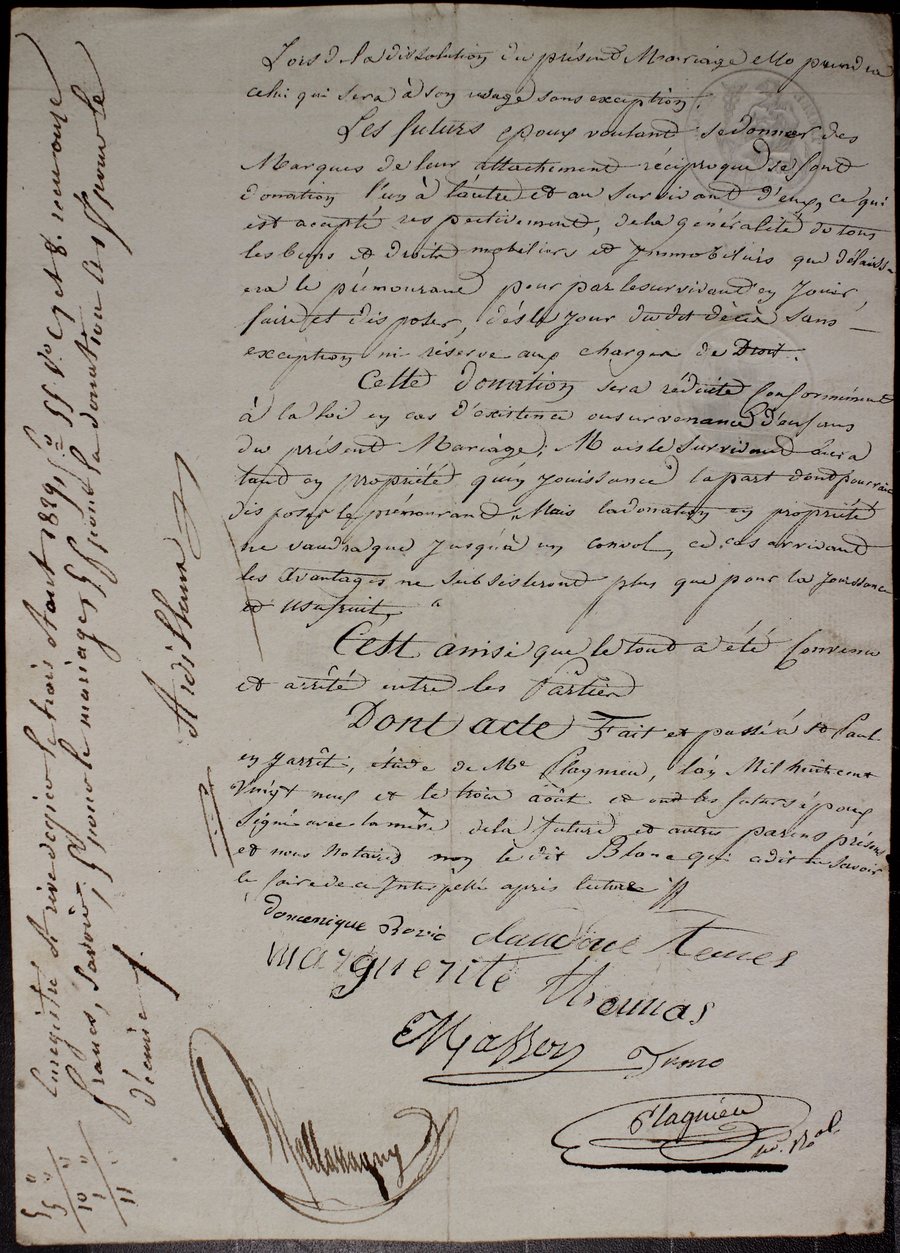 Lors de la dissolution du présent Mariage elle prendra
celui qui sera à son usage sans exception.
Les futurs epoux voulant se donner des
Marques de leur attachement réciproque se font
donation l'un à l'autre et au survivant d'eux, ce qui
est accepté respectivement, de la généralité de tous
les biens et droits mobiliers et Immobiliers que délaiss-
era le prémourant pour par le survivant en Jouir,
faire et disposer, dès le Jour du dit décès sans
exception ni réserve aux charges de Droit.
Cette donation sera réduite Conformément
à la loi en cas d'existence ou survenance d'enfans
du présent Mariage, Mais le survivant aura
tant en propriété qu'en Jouissance la part dont pourrait
disposer le prémourant, Mais la donation en propriété
ne vaudra que Jusqu'à un convol, ce cas arrivant
les avantages ne subsisteront plus que pour la Jouissance
et usufruit.
C'est ainsi que le tout a été Convenu
et arrêté entre les Parties
Dont acte Fait et passé à St Paul
en Jarrêt, étude de Me Plagnieu, l'an Mil huit cent
Vingt neuf et le trois août et ont les futurs époux
Signé avec la mère de la future et autres parens présens
et nous Notaires non le dit Blanc qui a dit ne savoir
le faire de ce Interpellé après lecture
domenique Bovic claudine
marguerite thomas
Masson
Plagnieu
no. Ral.
Enregistré à rivedegier le trois août 1829, fo 55 Vo Cs 7 et 8. reçu onze
francs, Savoir, 5 f pour le mariage, 5 f pour la donation et 1 f pour le
décime
5 "
5 "
10 "
1 "
11 "